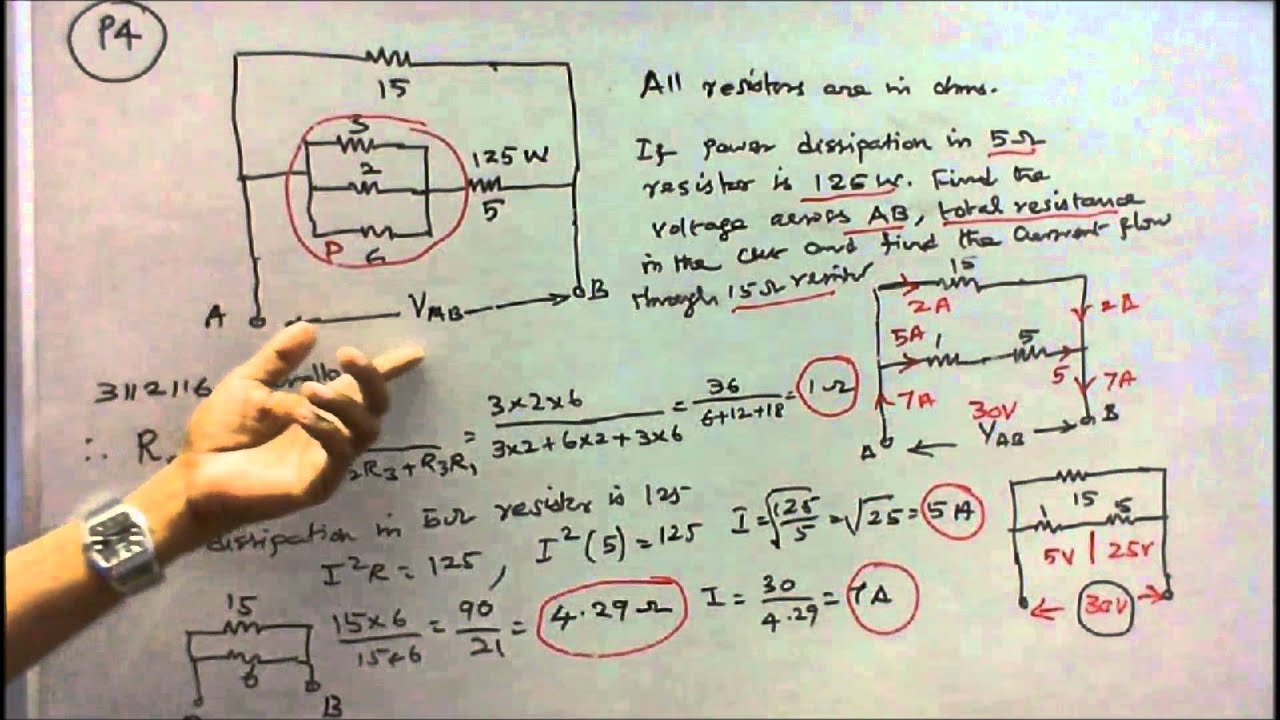 P4
15
3
2
P 6
125 W
5
A
VAB
B
All resistors are in ohms.
If power dissipation in 5Ω
resistor is 125 W. Find the
voltage across AB, total resistance
in the and find the current flow
through 15Ω resistor
15
2A
2A
5A
1
5
5
7A
7A
30V
A
VAB
B
3||2||6
∴ R
2R3+R3R1
= 3×2×6 / 3×2+6×2+3×6 = 36 / 6+12+18 = 1Ω
dissipation in 5Ω resistor is 125
I²R = 125, I²(5) = 125
I = √125/5 = √25 = 5A
15
6
B
15×6 / 15+6 = 90 / 21 = 4.29Ω
I = 30 / 4.29 = 7A
15
1
5
5V | 25V
30V